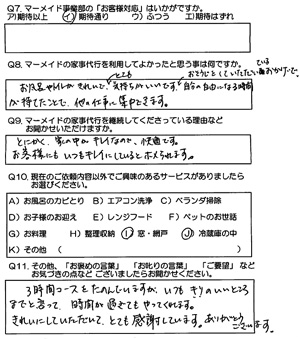 Q7. マーメイド事業部の「お客様対応」はいかがですか。
ア)期待以上 イ)期待通り ウ)ふつう エ)期待はずれ
Q8. マーメイドの家事代行を利用してよかったと思う事は何ですか。
とても
お風呂やトイレがきれいで、気持ちがいいです。自分の自由になる時間
が持てたことで、他の仕事に集中できます。
Q9. マーメイドの家事代行を継続してくださっている理由など
お聞かせいただけますか。
とにかく、家の中がキレイなので、快適です。
お客様にもいつもキレイにしているとホメられます。
Q10. 現在のご依頼内容以外でご興味のあるサービスがありましたら
お選びください。
A) お風呂のカビとり B) エアコン洗浄 C) ベランダ掃除
D) お子様のお迎え E) レンジフード F) ペットのお世話
G) お料理 H) 整理収納 I) 窓・網戸 J) 冷蔵庫の中
K) その他 ( )
Q11. その他、「お褒めの言葉」「お叱りの言葉」「ご要望」など
お気づきの点など ございましたらお聞かせください。
3時間コースをたのんでいますが、いつも きりのいいところ
までと言って、時間が過ぎてもやってくれます。
きれいにしていただいて、とても感謝しています。ありがとう
ございます。